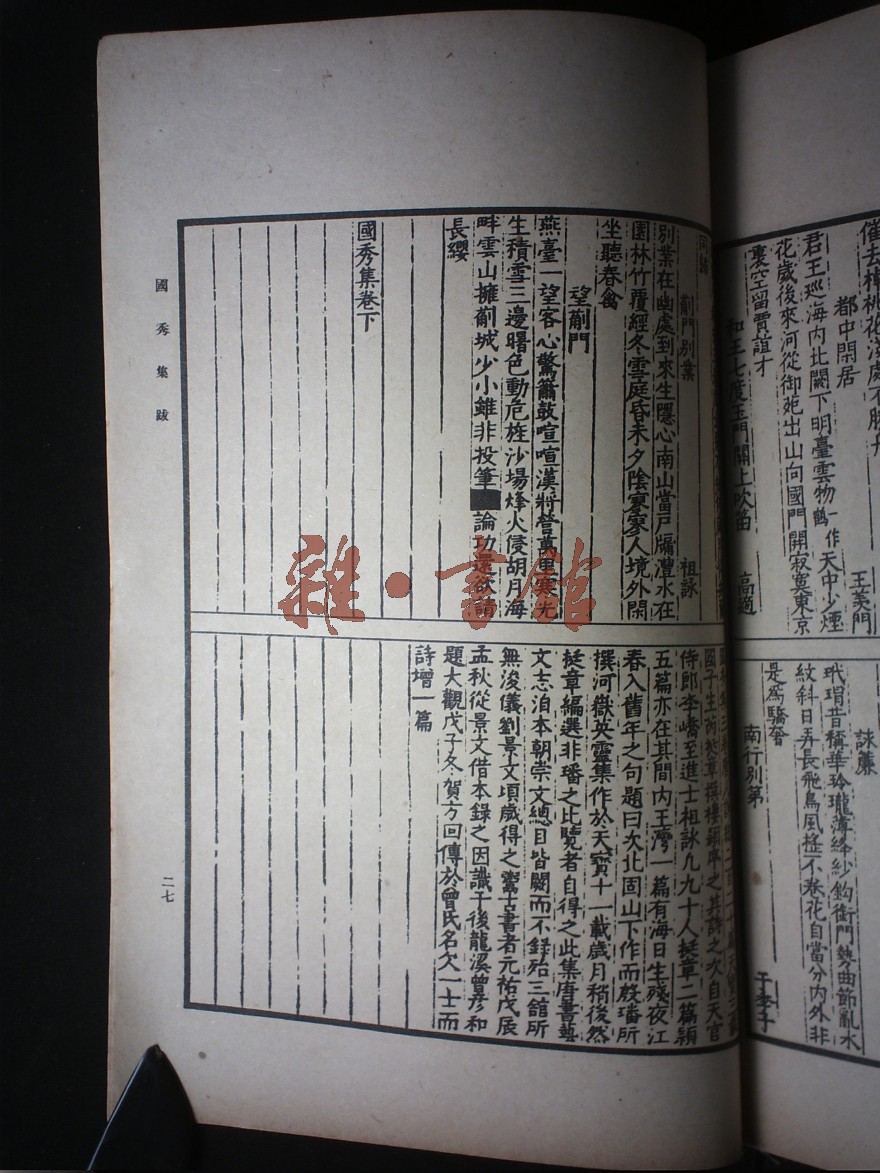 催去棹桃花
處不勝舟
都中閑居
王羙門
君王巡海内北闕下明臺雲物一作鶴天中少煙
花歲後來河從御苑出山向國門開寂寞東京
裏空留賈誼才
和王七度玉門關上吹笛
高適
詠簾
玳瑁昔稱華玲瓏薄絳紗鈎銜門勢曲節亂水
紋斜日弄長飛鳥風搖不卷花自當分内外非
是為驕奢
南行別第
于季子
薊門別業
祖詠
別業在幽處到來生隱心南山當戸牖灃水在
園林竹覆經冬雪庭昏未夕陰寥寥人境外閑
坐聽春禽
望薊門
燕臺一望客心驚簫鼓喧喧漢將營萬里寒光
生積雪三邊曙色動危旌沙塲烽火侵胡月海
畔雲山擁薊城少小雖非投筆
論功還欲請
長纓
國秀集卷下
侍郎李嶠至進士祖詠凡九十人挺章二篇潁
五篇亦在其間内王灣一篇有海日生殘夜江
春入舊年之句題曰次北固山下作而殷璠所
撰河嶽英靈集作於天寶十一載歲月稍後然
挺章編選非璠之比覽者自得之此集唐書藝
文志洎本朝崇文總目皆闕而不録殆三舘所
無浚儀劉景文頃歲得之鬻古書者元祐戊辰
孟秋從景文借本録之因識于後龍溪曾彦和
題大觀戊子冬賀方回傳於曾氏名欠一士而
詩增一篇
國秀集 跋
二七
雜·書館